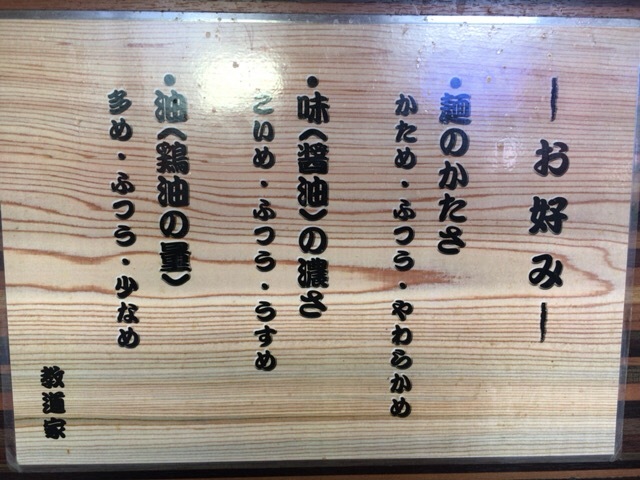 ーお好みー
・麺のかたさ
かため・ふつう・やわらかめ
・味(醤油)の濃さ
こいめ・ふつう・うすめ
・油(鶏油の量)
多め・ふつう・少なめ
教道家